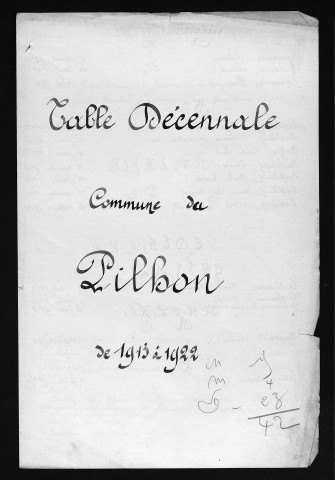 Table Décennale
Commune du
Pilhon
de 1913 à 1922
4
42